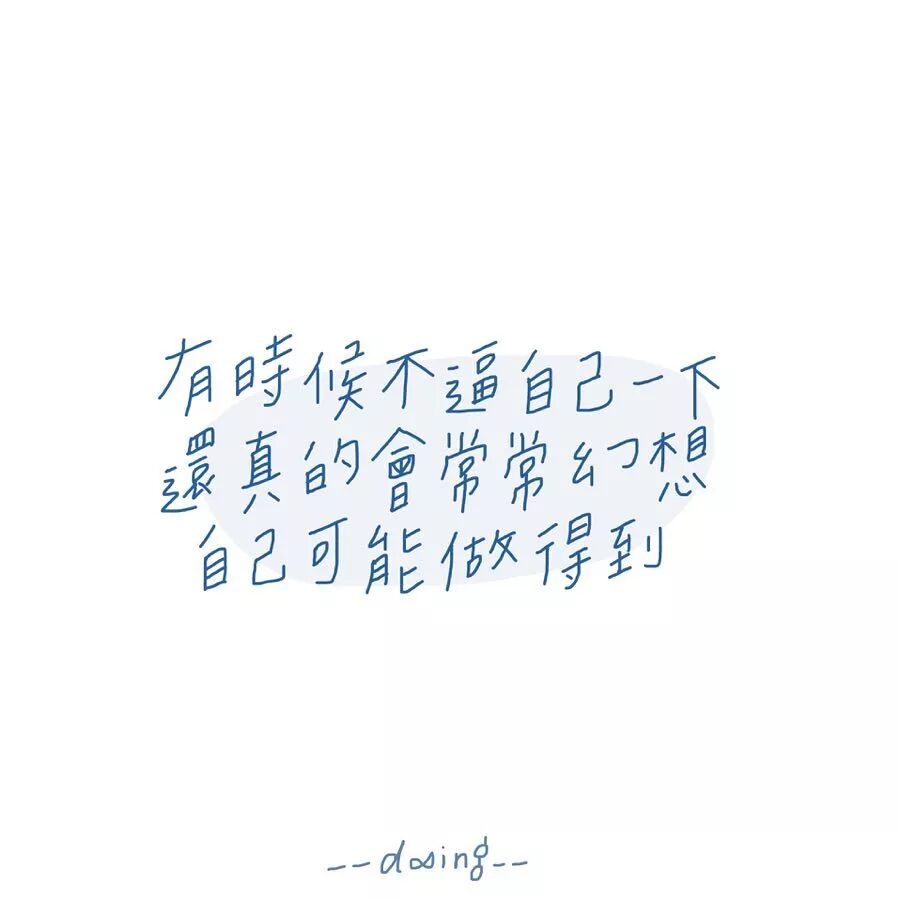 有時候不逼自己一下
還真的會常常幻想
自己可能做得到
--dosing--